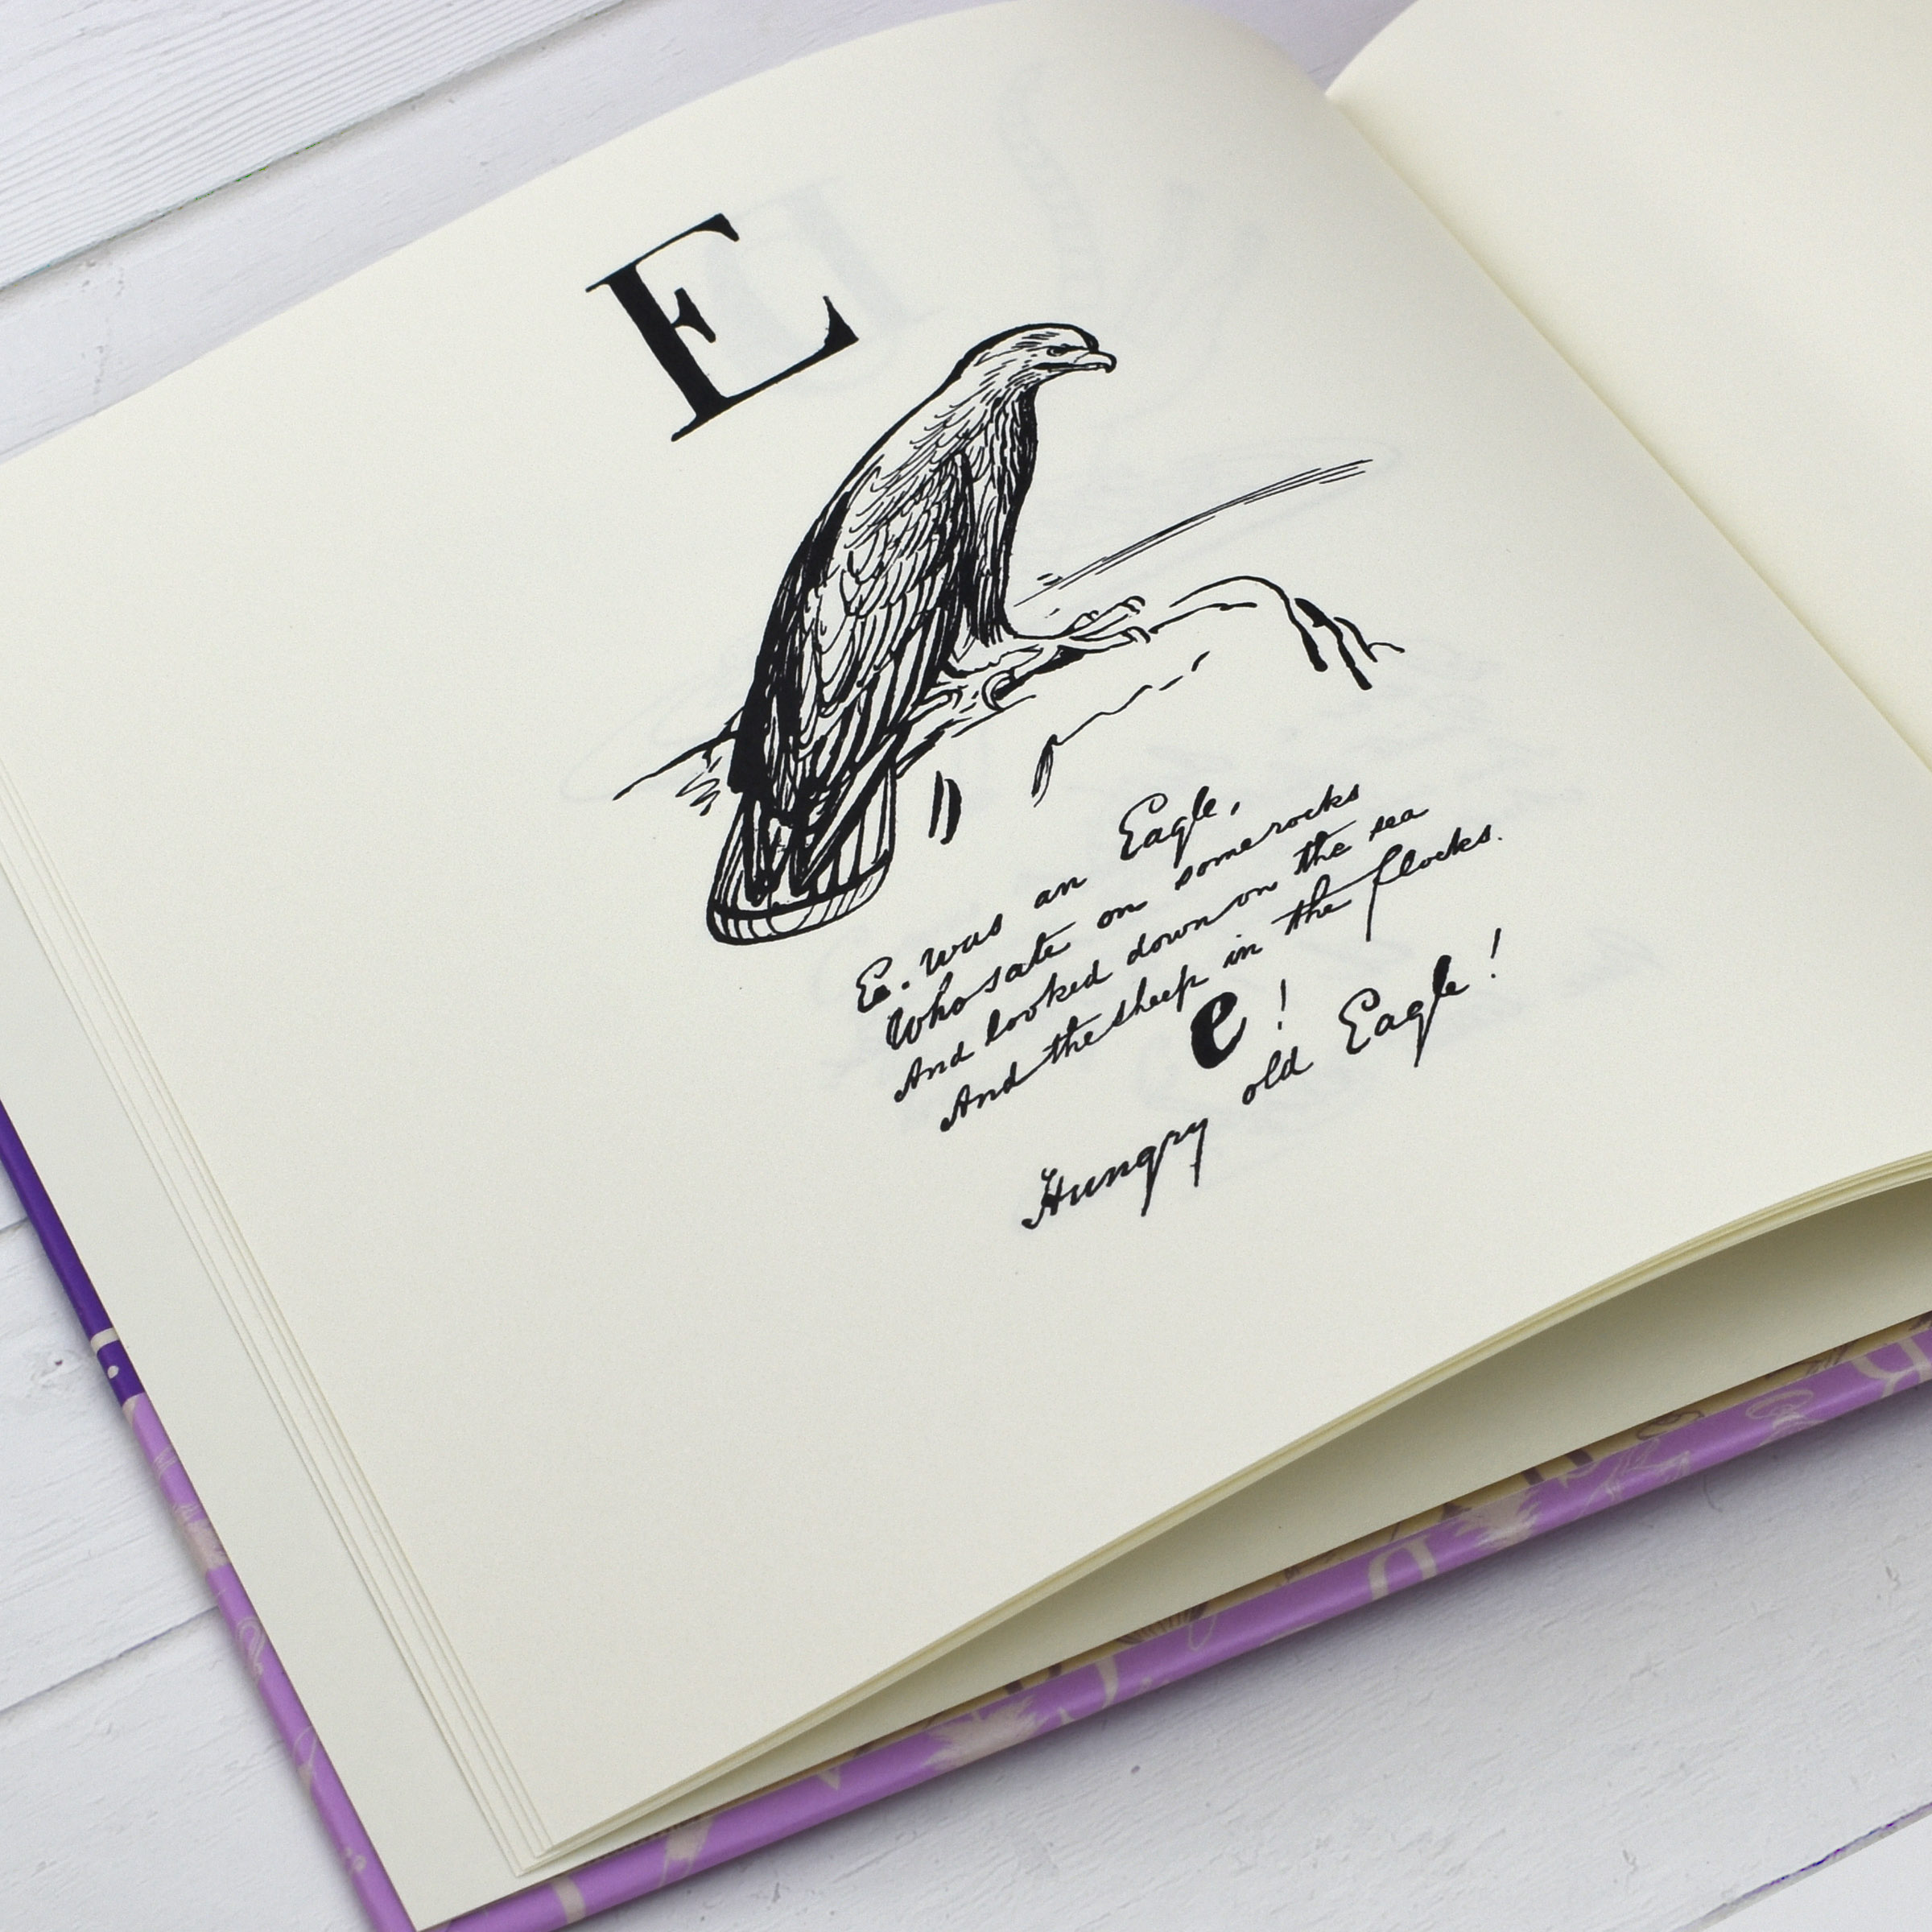 E
E. was an Eagle,
Who sate on some rocks
And looked down on the sea
And the sheep in the flocks.
e!
Hungry old Eagle!